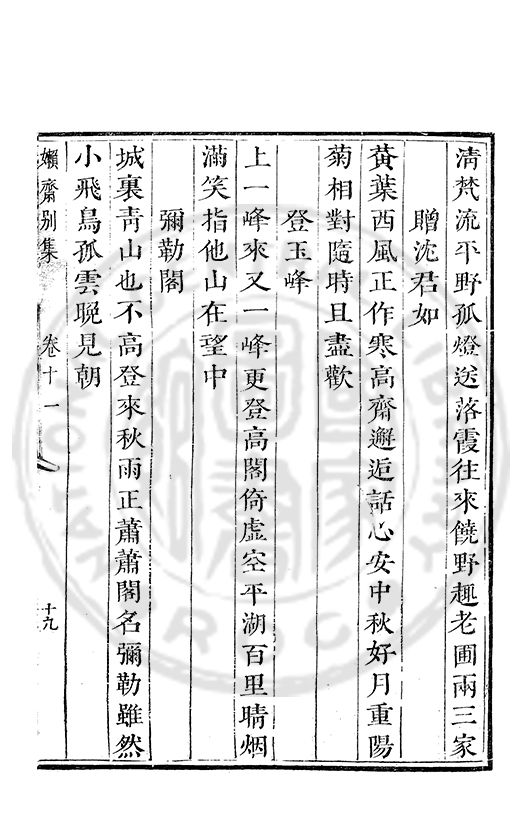 清梵流平野孤燈送落霞往來饒野趣老圃兩三家
贈沈君如
黃葉西風正作寒高齋邂逅話心安中秋好月重陽
菊相對隨時且盡歡
登玉峰
上一峰來又一峰更登高閣倚虛空平湖百里晴烟
滿笑指他山在望中
彌勒閣
城裏青山也不高登來秋雨正蕭蕭閣名彌勒雖然
小飛鳥孤雲晩見朝
嬾齋别集
卷十一
十九